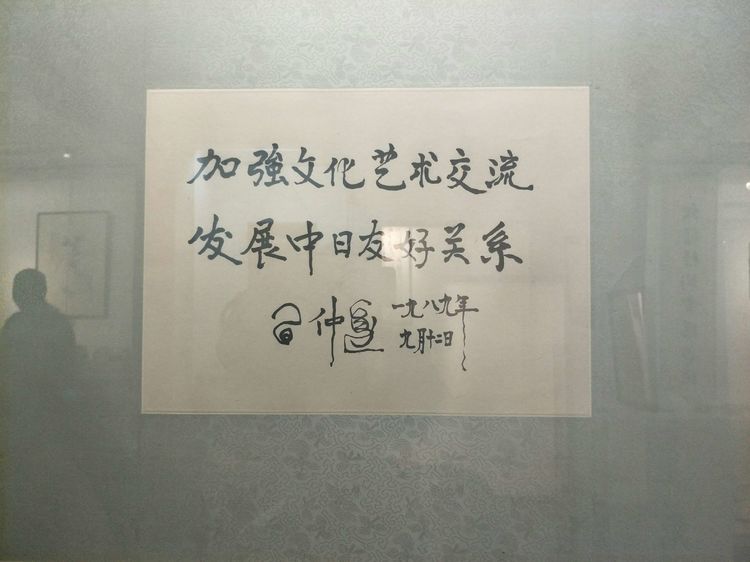 加強文化艺术交流
发展中日友好关系
习仲勋 一九八九年
九月十二日